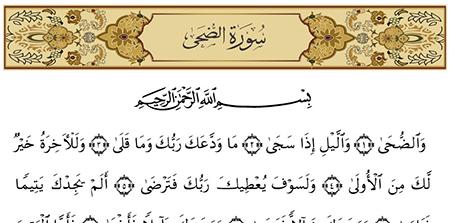 سُورَةُ الضُّحَى
بِسْمِ اللَّهِ الرَّحْمَٰنِ الرَّحِيمِ
وَالضُّحَىٰ ﴿١﴾ وَاللَّيْلِ إِذَا سَجَىٰ ﴿٢﴾ مَا وَدَّعَكَ رَبُّكَ وَمَا قَلَىٰ ﴿٣﴾ وَلَلْآخِرَةُ خَيْرٌ
لَّكَ مِنَ الْأُولَىٰ ﴿٤﴾ وَلَسَوْفَ يُعْطِيكَ رَبُّكَ فَتَرْضَىٰ ﴿٥﴾ أَلَمْ يَجِدْكَ يَتِيمًا